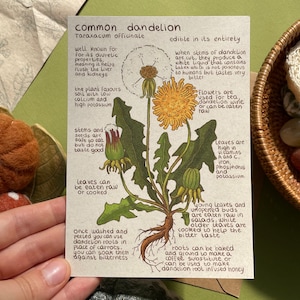 common dandelion
taraxacum officinale
edible in its entirety
well known for
its diuretic
properties,
making it help
flush the liver
and kidneys
when stems of dandelion
are cut, they produce a
white liquid that
which is not poisonous
to humans but tastes
bitter
the plant favours
soils with low
calcium and
high potassium
flowers are
used for
dandelion wine
or can be eaten
raw
stems and
are
safe to eat
but do not
taste good
leaves are
high in
vitamins
A and C,
iron,
phosphorus
and
potassium
leaves can
be eaten raw
or cooked
young leaves and
unopened buds
are eaten raw in
salads, while
older leaves are
cooked to help the
bitter taste
once washed and
peeled you can use
dandelion roots in
place of carrots.
you can soak them
against bitterness
roots can be baked
and ground to make a
coffee substitute or
can be used to make
dandelion root infused honey